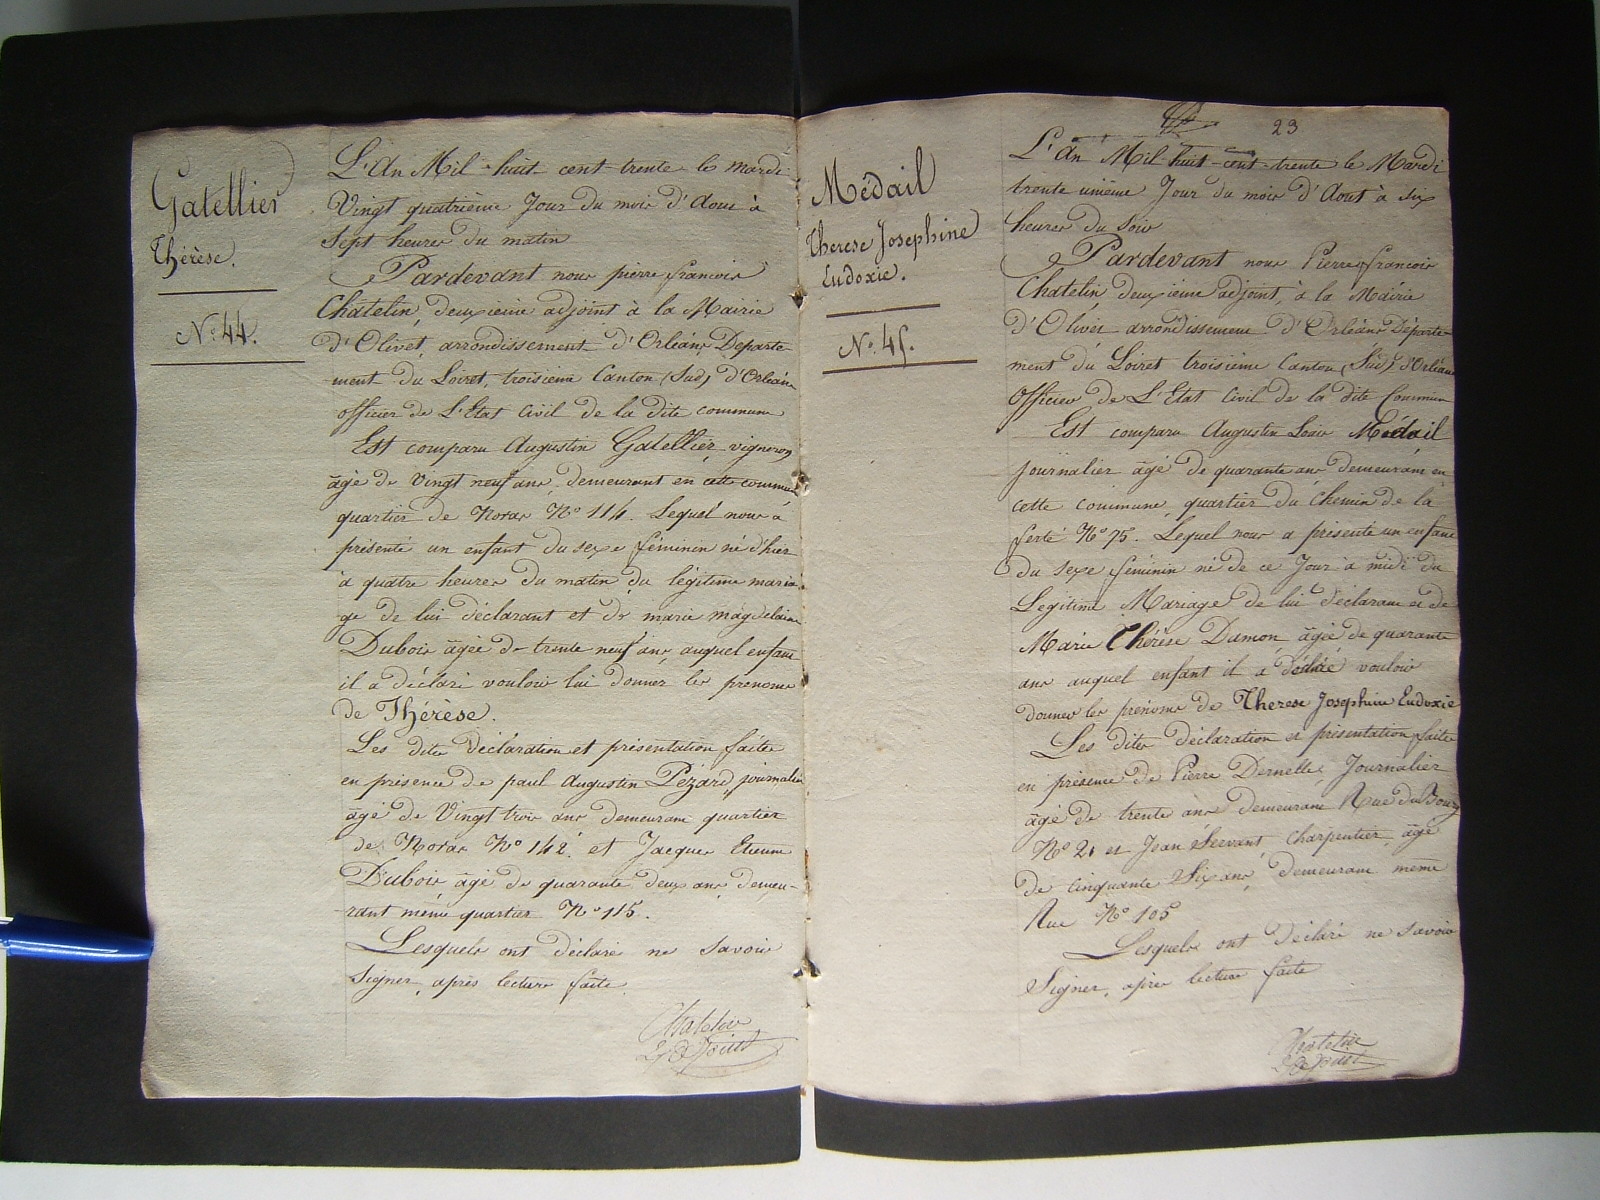 Gatellier
Thérèse.
N.º 44.
L'An Mil-huit cent-trente le mardi
Vingt quatrième Jour du mois d'Aout à
Sept heures du matin
Pardevant nous pierre francois
Châtelin, deuxieme adjoint à la Mairie
d'Olivet, arrondissement d'Orléans, Departe-
-ment du Loiret, troisième Canton (Sud) d'Orléans
officier de L'Etat Civil de la dite commune
Est comparu Augustin Gatellier, vigneron
âgé de vingt neuf ans, demeurant en cette commune
quartier de Noras Nº 114. Lequel nous a
présenté un enfant du sexe féminin né d'hier
à quatre heures du matin du légitime maria-
ge de lui déclarant et de marie magdelaine
Dubois âgée de trente neuf ans, auquel enfant
il a déclaré vouloir lui donner les prenoms
de Thérèse.
Les dites déclaration et présentation faites
en présence de paul Augustin Pezard, journalier
âgé de Vingt trois ans demeurant quartier
de Noras Nº 142. et Jacques Etienne
Dubois, âgé de quarante deux ans, demeu-
-rant même quartier Nº 115.
Lesquels ont déclaré ne savoir
Signer, après lecture faite.
Chatelin
23
Médail
Therese Josephine
Eudoxie.
Nº. 45.
L'An Mil-huit-cent-trente le Mardi
trente unième Jour du mois d'Aout à six
heures du soir
Pardevant nous Pierre francois
Chatelin, deuxième adjoint, à la Mairie
d'Olivet arrondissement d'Orléans Départe-
ment du Loiret troisième Canton (Sud) d'Orléans
Officier de L'Etat Civil de la dite Commune
Est comparu Augustin Louis Médail
journalier âgé de quarante ans demeurant en
cette commune, quartier du Chemin de la
ferté Nº 75. Lequel nous a présenté un enfant
du sexe féminin né de ce Jour à midi du
Legitime Mariage de lui déclarant et de
Marie Thérèse Damon, âgée de quarante
ans auquel enfant il a déclaré vouloir
donner les prénoms de Therese Josephine Eudoxie
Les dites déclaration et présentation faites
en présence de Pierre Dernelle Journalier
âgé de trente ans demeurant Rue du Bourg
Nº 21 et Jean Servant Charpentier, âgé
de cinquante Six ans, demeurant même
Rue Nº 105
Lesquels ont déclaré ne savoir
Signer, après lecture faite
Chatelin